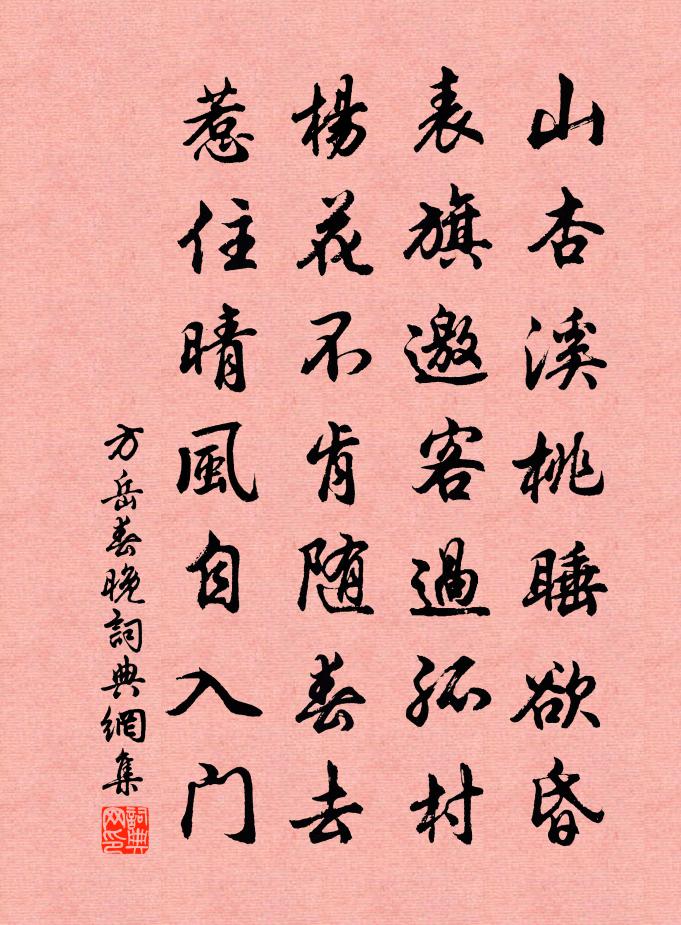 山杏溪桃睡欲昏
表旗邀客過孤村
楊花不肯随春去
惹住晴風自入门
方岳春晚詞典網集
詞典网印